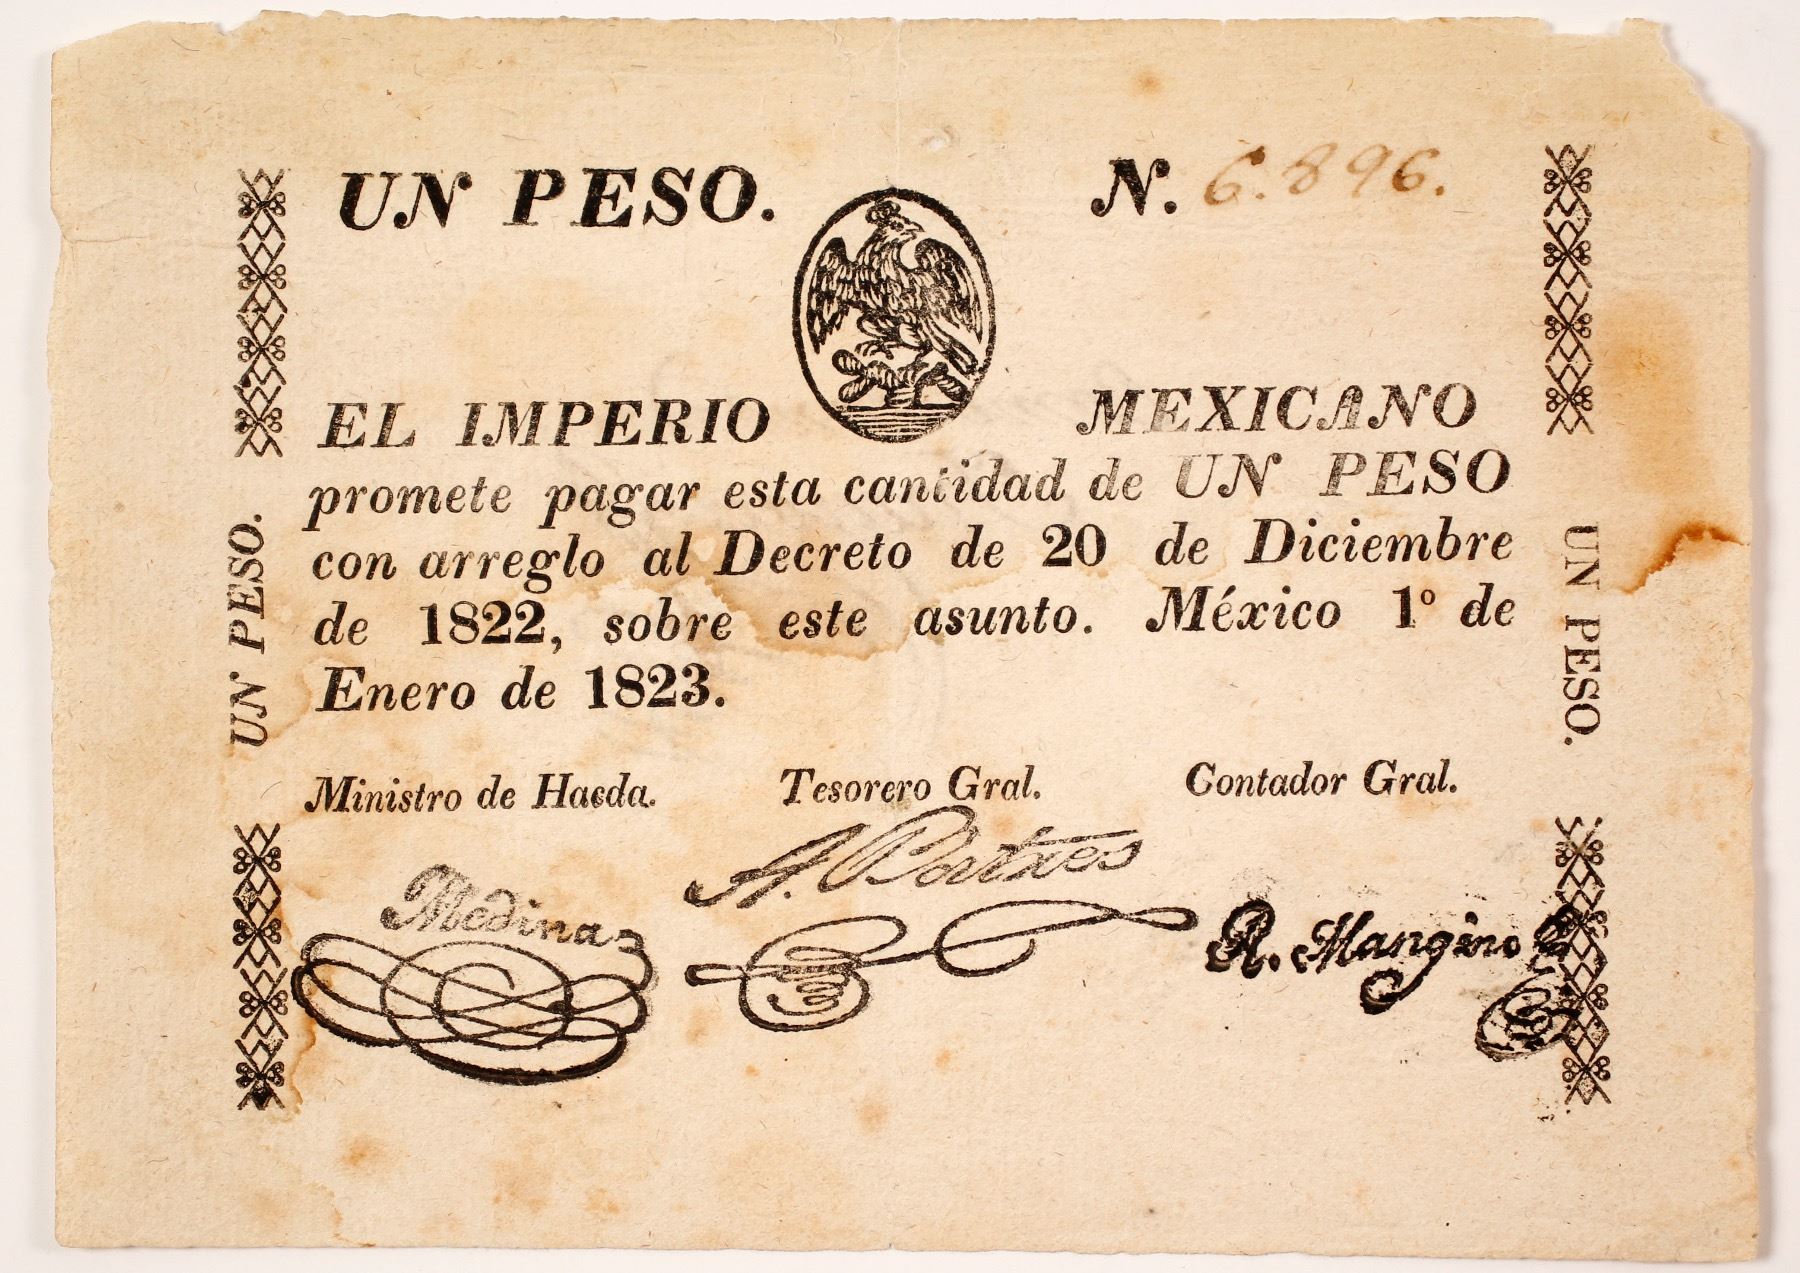 UN PESO.
N. 6.896.
EL IMPERIO MEXICANO
promete pagar esta cantidad de UN PESO
con arreglo al Decreto de 20 de Diciembre
de 1822, sobre este asunto. México 1º de
Enero de 1823.
UN PESO.
UN PESO.
Ministro de Hacda. Tesorero Gral. Contador Gral.
Medina A. Batres R. Mangino